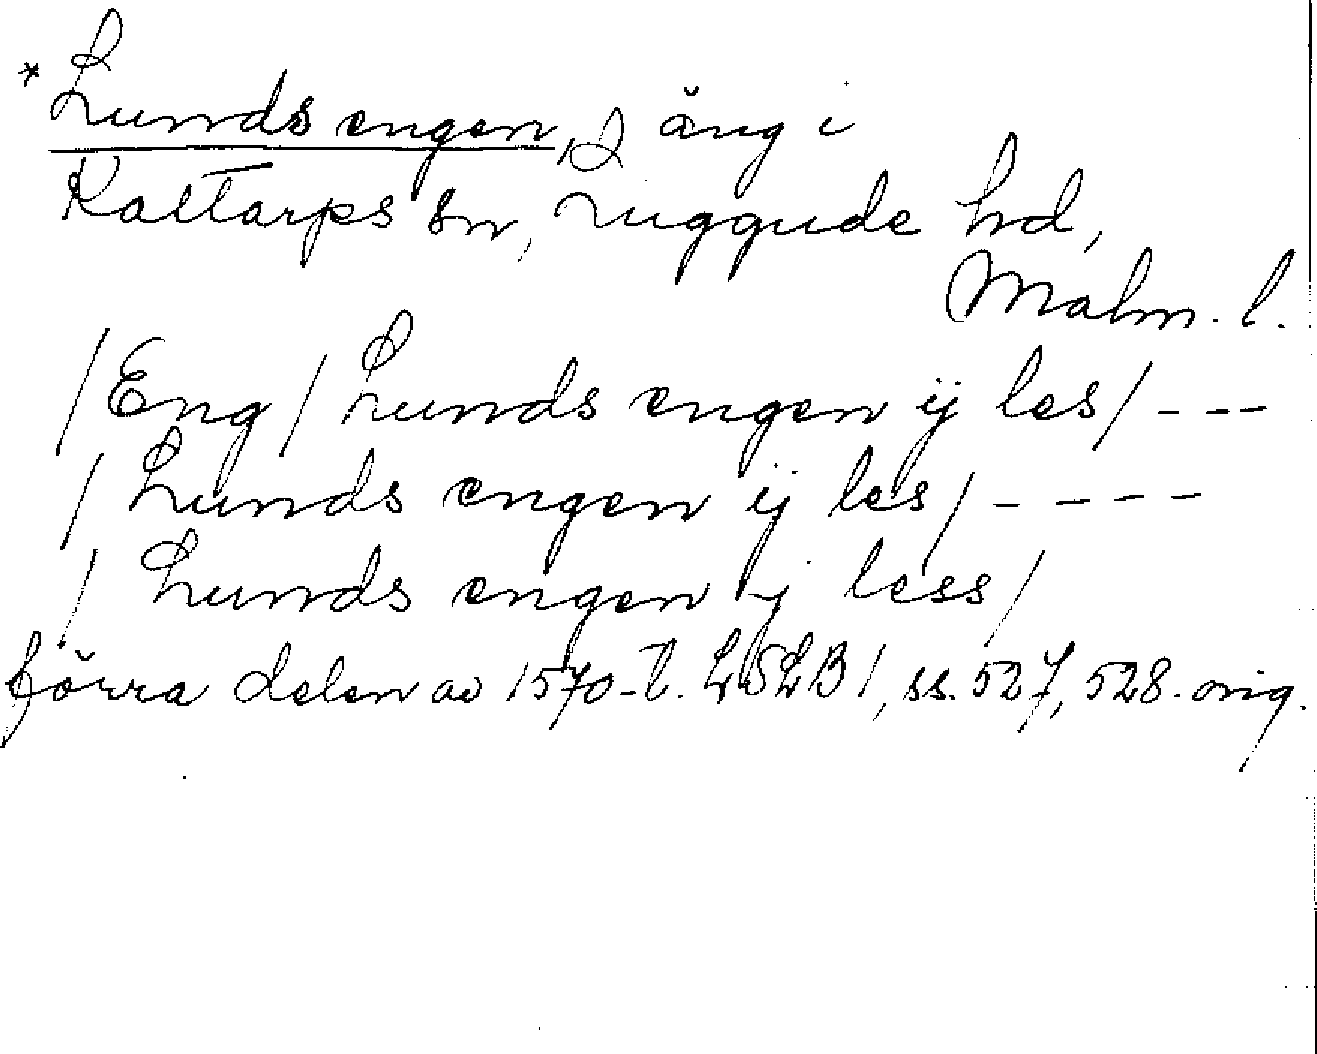 *Lunds engen, äng i
Kattarps sn, Luggude hd,
Malm. l.
/Eng/ Lunds engen ij les/---
/Lunds engen ij les/----
/Lunds engen ij less/
förra delen av 1570-t. LSLB 1, ss. 527, 528. orig.